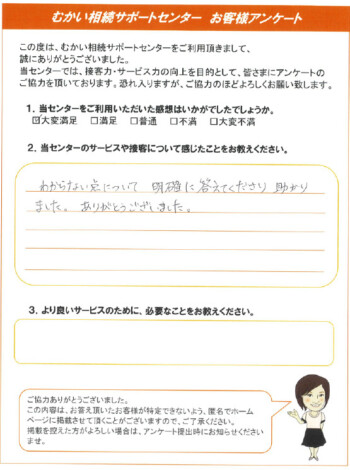 むかい相続サポートセンター お客様アンケート
この度は、むかい相続サポートセンターをご利用頂きまして、
誠にありがとうございました。
当センターでは、接客力・サービス力の向上を目的として、皆さまにアンケートの
ご協力を頂いております。恐れ入りますが、ご協力のほどよろしくお願い致します。
1. 当センターをご利用いただいた感想はいかがでしたでしょうか。
☑大変満足 □満足 □普通 □不満 □大変不満
2. 当センターのサービスや接客について感じたことをお教えください。
わからない点について 明確に答えてくださり 助かり
ました。ありがとうございました。
3. より良いサービスのために、必要なことをお教えください。
ご協力ありがとうございました。
この内容は、お答え頂いたお客様が特定できないよう、匿名でホーム
ページに掲載させて頂くことがございますので、ご了承ください。
掲載を控えた方がよろしい場合は、アンケート提出時にお知らせくださいませ。